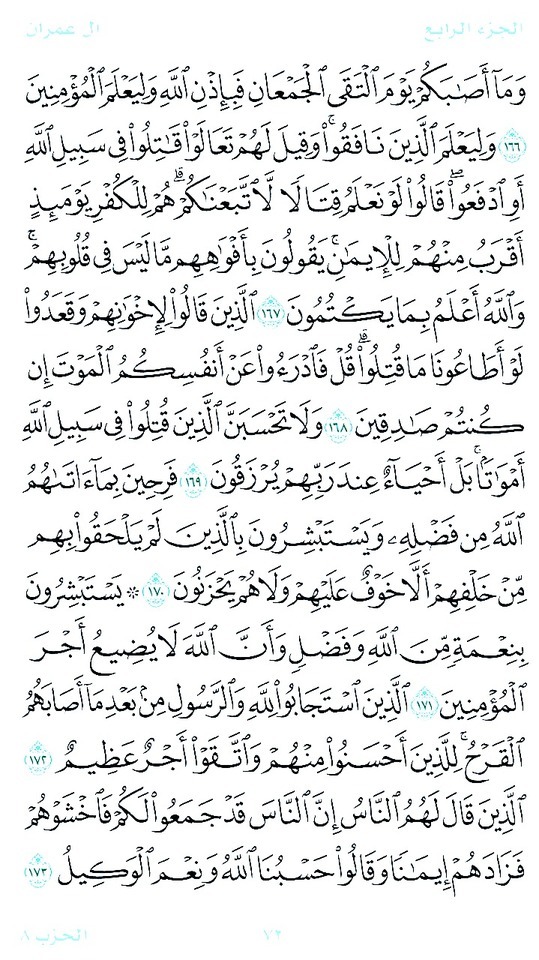 الجزء الرابع
ال عمران
وَمَآ أَصَٰبَكُمْ يَوْمَ ٱلْتَقَى ٱلْجَمْعَانِ فَبِإِذْنِ ٱللَّهِ وَلِيَعْلَمَ ٱلْمُؤْمِنِينَ
١٦٦ وَلِيَعْلَمَ ٱلَّذِينَ نَافَقُوا۟ ۚ وَقِيلَ لَهُمْ تَعَالَوْا۟ قَٰتِلُوا۟ فِى سَبِيلِ ٱللَّهِ
أَوِ ٱدْفَعُوا۟ ۖ قَالُوا۟ لَوْ نَعْلَمُ قِتَالًا لَّٱتَّبَعْنَٰكُمْ ۗ هُمْ لِلْكُفْرِ يَوْمَئِذٍ
أَقْرَبُ مِنْهُمْ لِلْإِيمَٰنِ ۚ يَقُولُونَ بِأَفْوَٰهِهِم مَّا لَيْسَ فِى قُلُوبِهِمْ ۗ
وَٱللَّهُ أَعْلَمُ بِمَا يَكْتُمُونَ ١٦٧ ٱلَّذِينَ قَالُوا۟ لِإِخْوَٰنِهِمْ وَقَعَدُوا۟
لَوْ أَطَاعُونَا مَا قُتِلُوا۟ ۗ قُلْ فَٱدْرَءُوا۟ عَنْ أَنفُسِكُمُ ٱلْمَوْتَ إِن
كُنتُمْ صَٰدِقِينَ ١٦٨ وَلَا تَحْسَبَنَّ ٱلَّذِينَ قُتِلُوا۟ فِى سَبِيلِ ٱللَّهِ
أَمْوَٰتًۢا ۚ بَلْ أَحْيَآءٌ عِندَ رَبِّهِمْ يُرْزَقُونَ ١٦٩ فَرِحِينَ بِمَآ ءَاتَىٰهُمُ
ٱللَّهُ مِن فَضْلِهِۦ وَيَسْتَبْشِرُونَ بِٱلَّذِينَ لَمْ يَلْحَقُوا۟ بِهِم
مِّنْ خَلْفِهِمْ أَلَّا خَوْفٌ عَلَيْهِمْ وَلَا هُمْ يَحْزَنُونَ ١٧٠ ۞ يَسْتَبْشِرُونَ
بِنِعْمَةٍ مِّنَ ٱللَّهِ وَفَضْلٍ وَأَنَّ ٱللَّهَ لَا يُضِيعُ أَجْرَ
ٱلْمُؤْمِنِينَ ١٧١ ٱلَّذِينَ ٱسْتَجَابُوا۟ لِلَّهِ وَٱلرَّسُولِ مِنۢ بَعْدِ مَآ أَصَابَهُمُ
ٱلْقَرْحُ ۚ لِلَّذِينَ أَحْسَنُوا۟ مِنْهُمْ وَٱتَّقَوْا۟ أَجْرٌ عَظِيمٌ ١٧٢
ٱلَّذِينَ قَالَ لَهُمُ ٱلنَّاسُ إِنَّ ٱلنَّاسَ قَدْ جَمَعُوا۟ لَكُمْ فَٱخْشَوْهُمْ
فَزَادَهُمْ إِيمَٰنًا وَقَالُوا۟ حَسْبُنَا ٱللَّهُ وَنِعْمَ ٱلْوَكِيلُ ١٧٣
٧٢
الحزب ٨